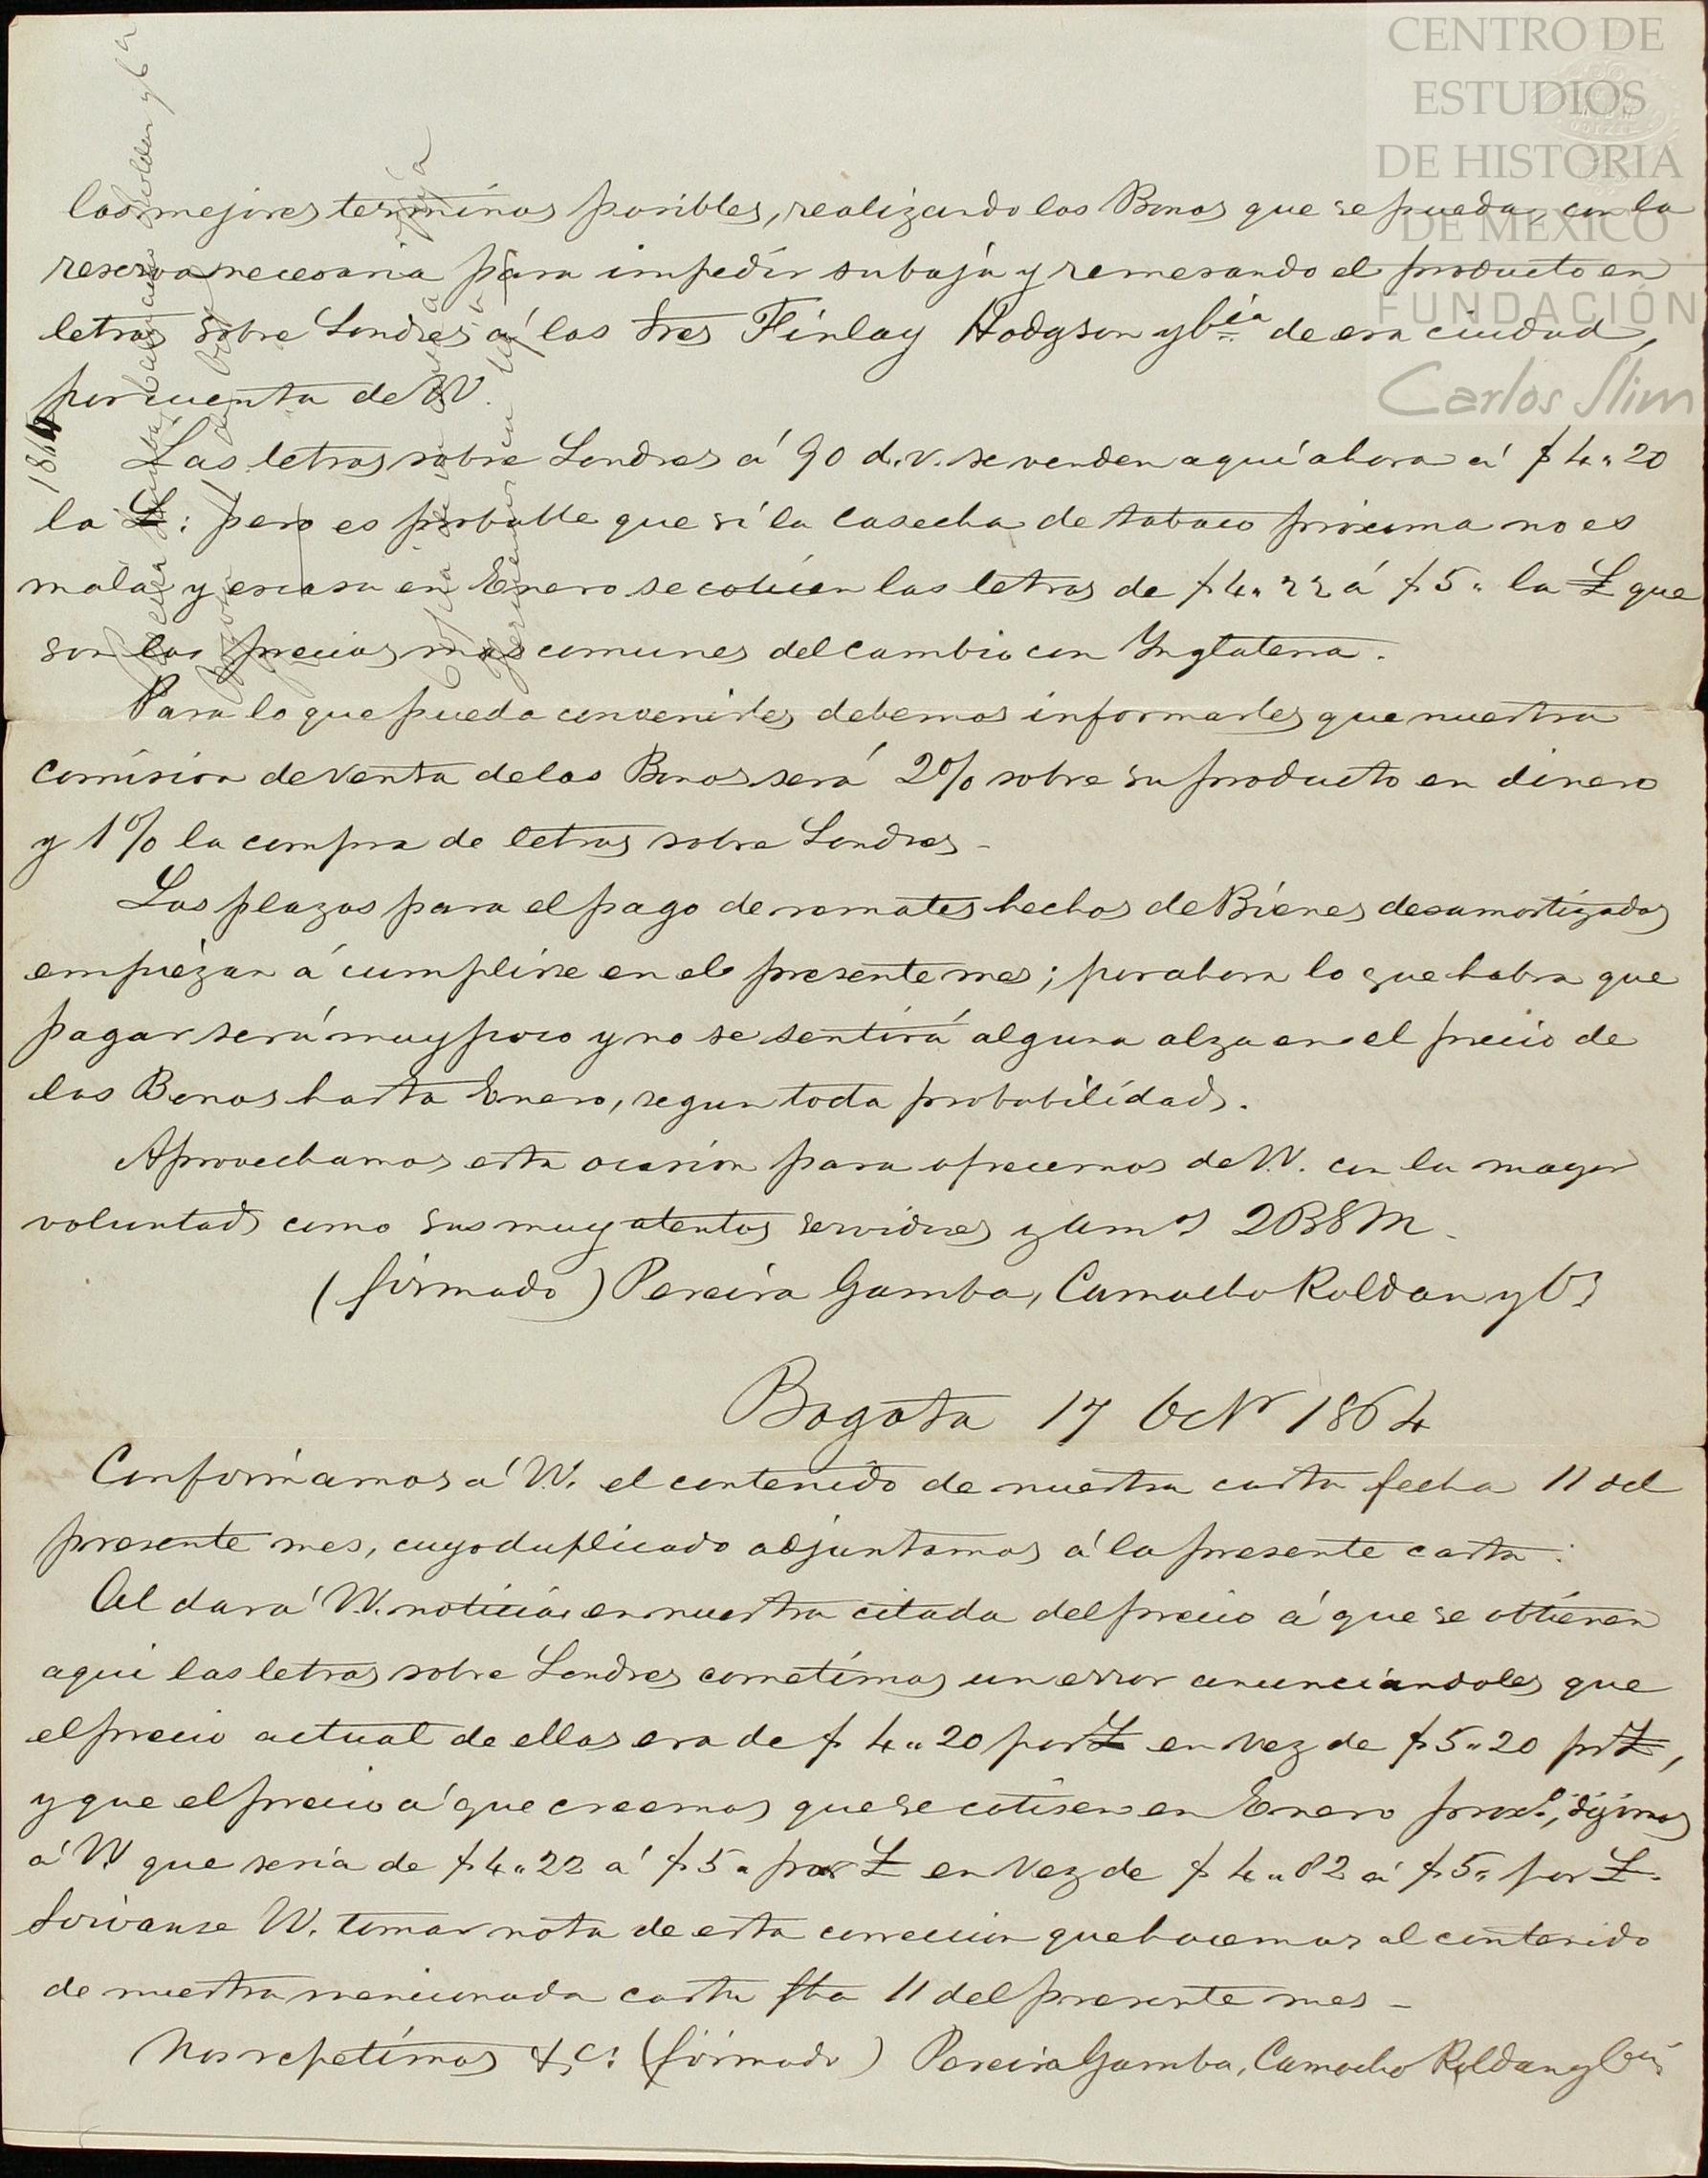 CENTRO DE
ESTUDIOS
DE HISTORIA
DE MÉXICO
FUNDACIÓN
Carlos Slim
los mejores terminos posibles, realizando los Bonos que se pueda, con la
reserva necesaria para impedir su baja y remesando el producto en
letras sobre Londres á los Sres Finlay Hodgson y Cía de esa ciudad,
por cuenta de VV.
Las letras sobre Londres á 90 d.v. se venden aquí ahora á $ 4.. 20
la £: pero es probable que si la cosecha de tabaco próxima no es
mala y escasa en Enero se coticen las letras de $ 4.. 22 á $ 5.. la £ que
son los precios mas comunes del cambio con Inglaterra.
Para lo que pueda convenirles debemos informarles que nuestra
comision de venta de los Bonos será 2% sobre su producto en dinero
y 1% la compra de letras sobre Londres -
Los plazos para el pago de remates hechos de Bienes desamortizados
empiezan á cumplirse en el presente mes; por ahora lo que habra que
pagar será muy poco y no se sentirá alguna alza en el precio de
los Bonos hasta Enero, segun toda probabilidad.
Aprovechamos esta ocasion para ofrecernos de VV. con la mayor
voluntad como sus muy atentos servidores y am s QBSM -
(firmado) Pereira Gamba, Camacho Roldan y Ca
Bogota 17 Oct r 1864
Confirmamos á VV. el contenido de nuestra carta fecha 11 del
presente mes, cuyo duplicado adjuntamos á la presente carta:
Al dar á VV. noticias en nuestra citada del precio á que se obtienen
aqui las letras sobre Londres cometimos un error anunciandoles que
el precio actual de ellas era de $ 4.. 20 por £ en vez de $ 5.. 20 pr £,
y que el precio á que creemos que se cotisen en Enero proxo., dijimos
á VV que seria de $ 4.. 22 á $ 5.. por £ en vez de $ 4.. 82 á $ 5.. por £.
Sirvanse VV. tomar nota de esta correccion que hacemos al contenido
de nuestra mencionada carta fha 11 del presente mes -
Nos repetimos &c: (firmado) Pereira Gamba, Camacho Roldan y Cia